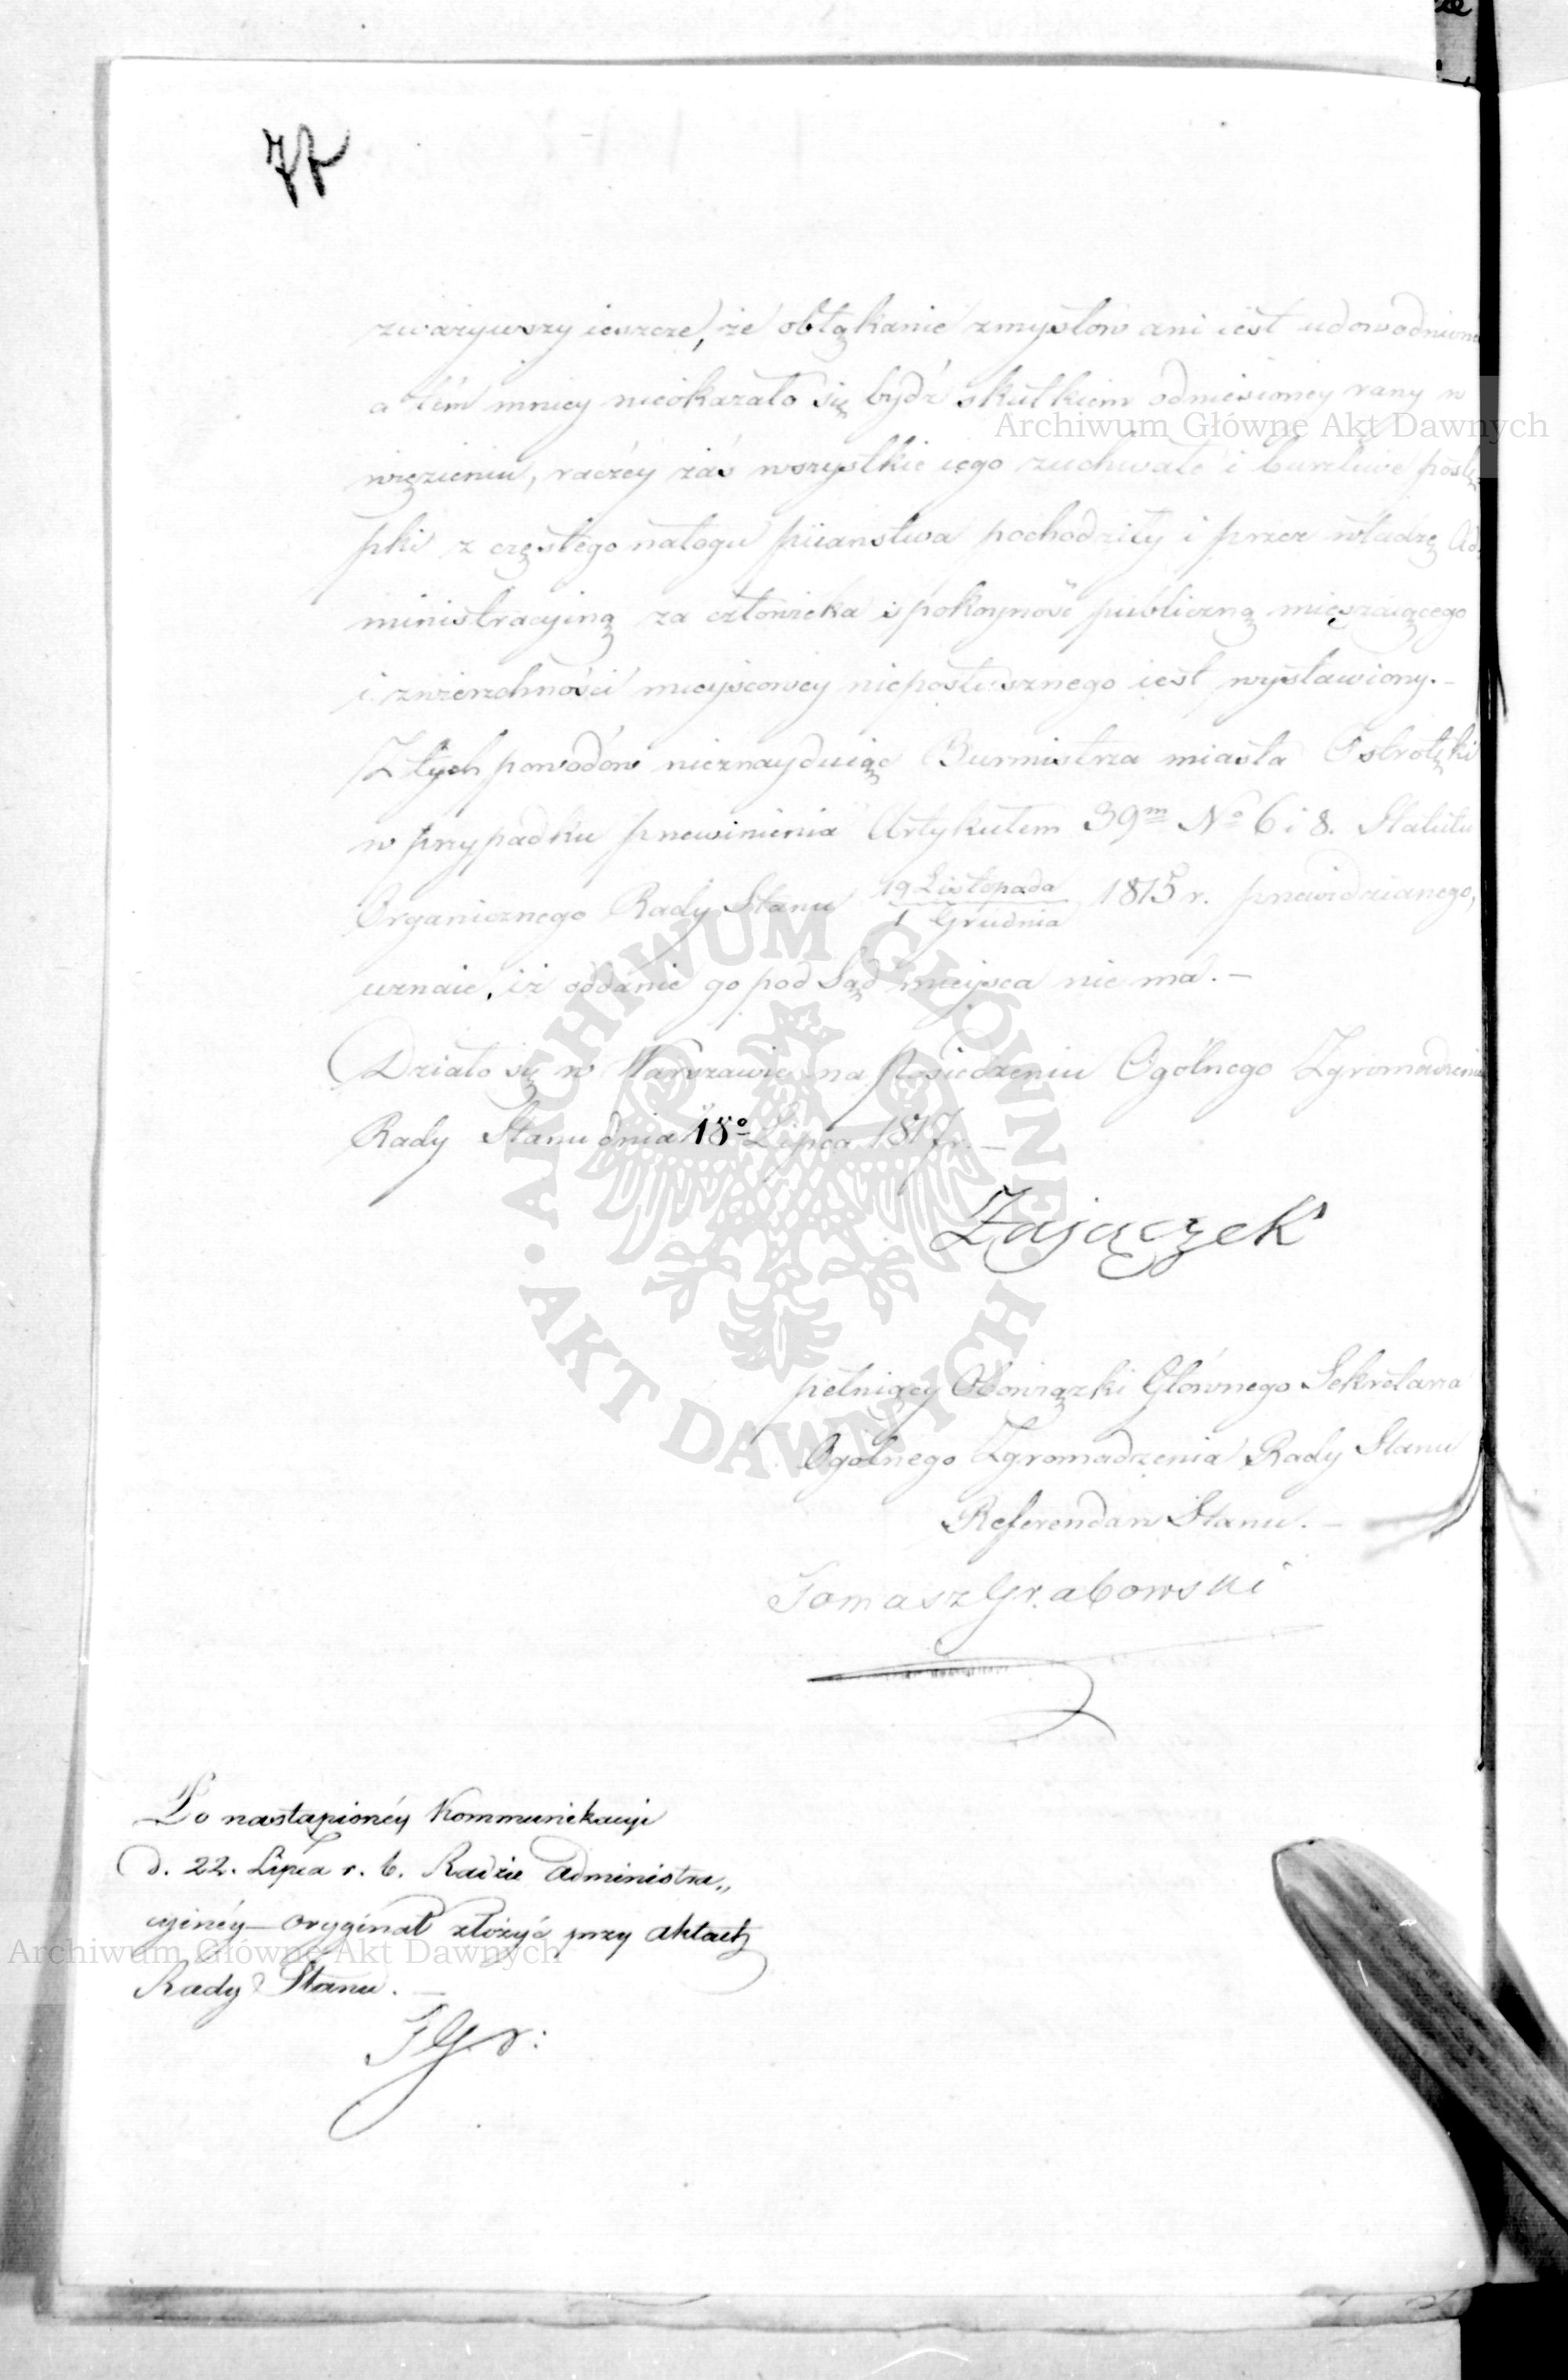 zważywszy ieszcze, że obłąkanie zmysłów ani iest udowodnione
a tém mniey nieokazało się bydź skutkiem odniesioney rany w
więzieniu, raczéy zaś wszystkie iego zuchwałe i burzliwe postę-
pki z częstego nałogu piiaństwa pochodziły i przez władzę Ad-
ministracyiną za człowieka spokoyność publiczną mięszaiącego
i zwierzchności mieyscowey nieposłusznego iest wystawiony.-
Z tych powodów nieznayduiąc Burmistrza miasta Ostrołęki
w przypadku przewinienia Artykułem 39m No 6 i 8. Statutu
Organicznego Rady Stanu 19 Listopada / 1 Grudnia 1815 r. przewidzianego,
uznaie, iż oddanie go pod Sąd mieysca nie ma.-
Działo się w Warszawie na Posiedzeniu Ogólnego Zgromadzenia
Rady Stanu dnia 18o Lipca 1817 r.-
Zajączek
pełniący Obowiązki Głównego Sekretarza
Ogólnego Zgromadzenia Rady Stanu
Referendarz Stanu.-
Tomasz Grabowski
Po nastąpionéy Kommunikacyi
d. 22. Lipca r. b. Radzie Administra„
cyinéy – oryginał złożyć przy aktach
Rady Stanu.-
TGr:
Archiwum Główne Akt Dawnych
Archiwum Główne Akt Dawnych
ARCHIWUM GŁÓWNE • AKT DAWNYCH •